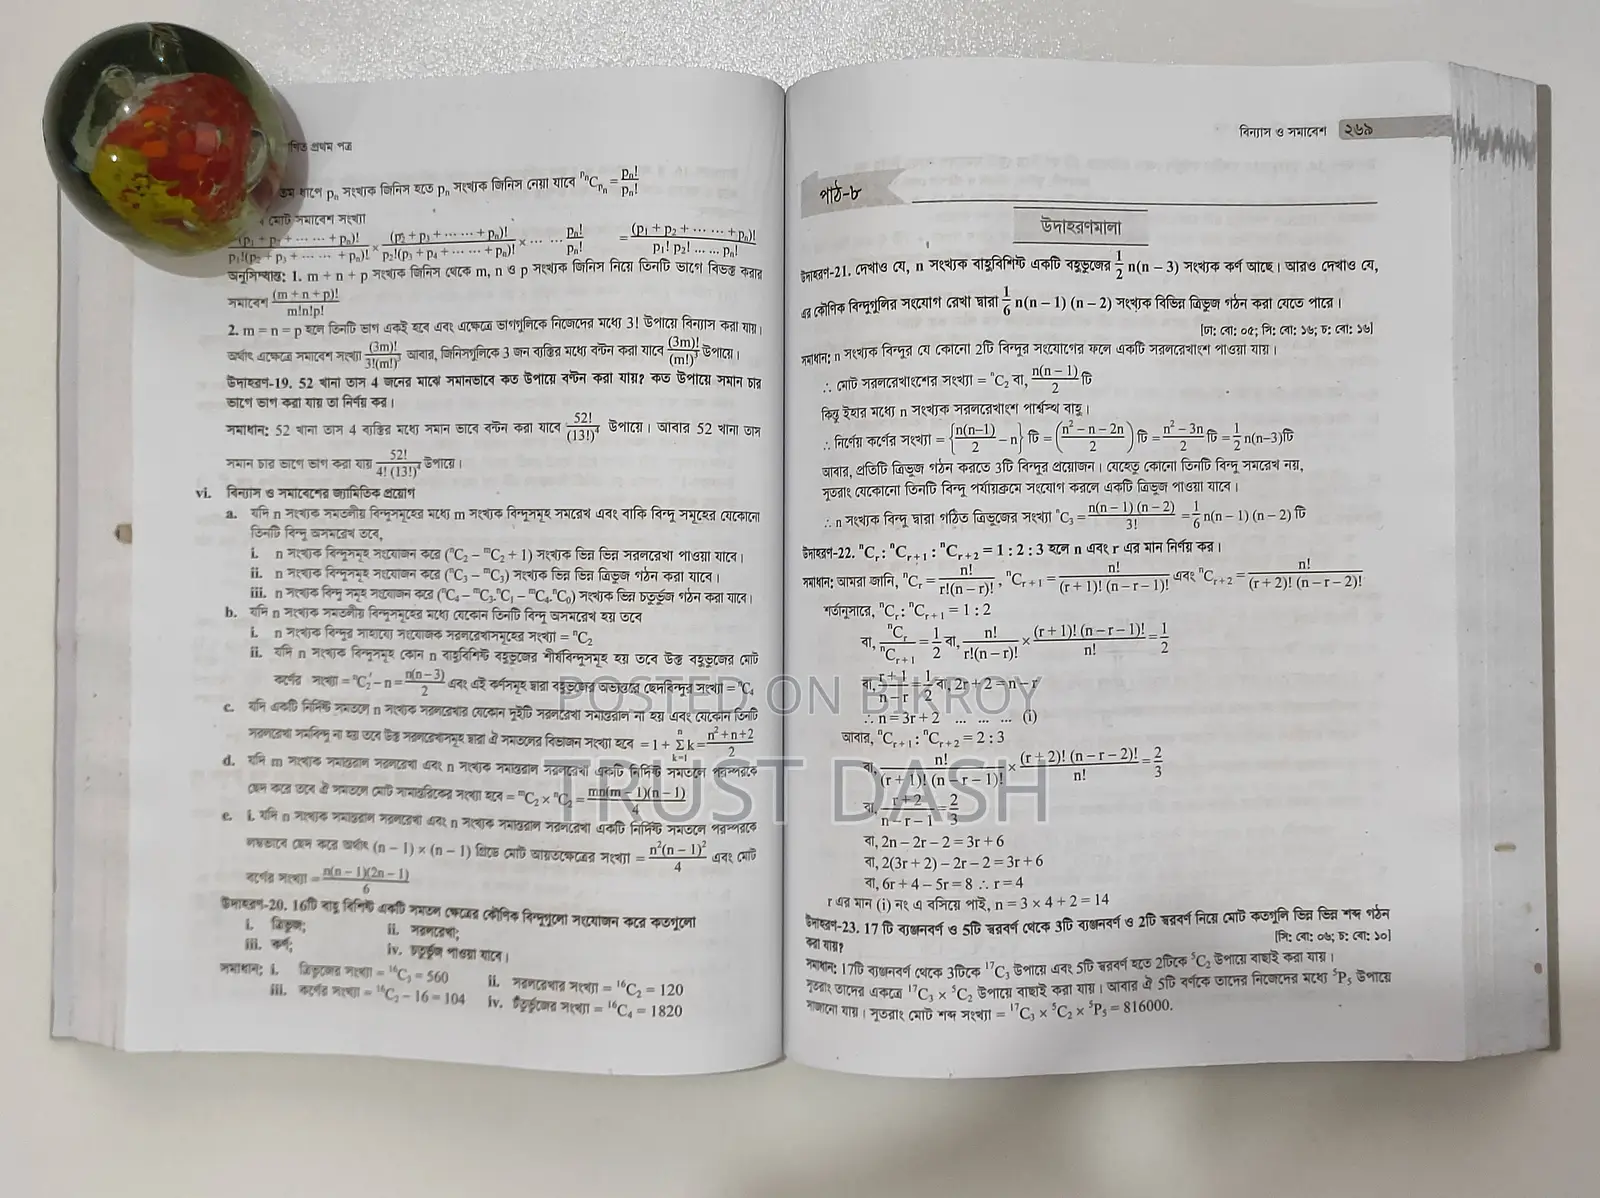 গণিত প্রথম পত্র
তম ধাপে pₙ সংখ্যক জিনিস হতে pₙ সংখ্যক জিনিস নেয়া যাবে ᵖⁿCₚₙ = pₙ!/pₙ!
মোট সমাবেশ সংখ্যা
(p₁ + p₂ + ... ... + pₙ)!/p₁!(p₂ + p₃ + ... ... + pₙ)! × (p₂ + p₃ + ... ... + pₙ)!/p₂!(p₃ + p₄ + ... ... + pₙ)! × ... ... pₙ!/pₙ! = (p₁ + p₂ + ... ... + pₙ)!/p₁! p₂! ... ... pₙ!
অনুসিদ্ধান্ত: 1. m + n + p সংখ্যক জিনিস থেকে m, n ও p সংখ্যক জিনিস নিয়ে তিনটি ভাগে বিভক্ত করার
সমাবেশ (m + n + p)!/m!n!p!
2. m = n = p হলে তিনটি ভাগ একই হবে এবং এক্ষেত্রে ভাগগুলিকে নিজেদের মধ্যে 3! উপায়ে বিন্যাস করা যায়।
অর্থাৎ এক্ষেত্রে সমাবেশ সংখ্যা (3m)!/3!(m!)³ আবার, জিনিসগুলিকে 3 জন ব্যক্তির মধ্যে বন্টন করা যাবে (3m)!/(m!)³ উপায়ে।
উদাহরণ-19. 52 খানা তাস 4 জনের মাঝে সমানভাবে কত উপায়ে বন্টন করা যায়? কত উপায়ে সমান চার
ভাগে ভাগ করা যায় তা নির্ণয় কর।
সমাধান: 52 খানা তাস 4 ব্যক্তির মধ্যে সমান ভাবে বন্টন করা যাবে 52!/(13!)⁴ উপায়ে। আবার 52 খানা তাস
সমান চার ভাগে ভাগ করা যায় 52!/4! (13!)⁴ উপায়ে।
vi. বিন্যাস ও সমাবেশের জ্যামিতিক প্রয়োগ
a. যদি n সংখ্যক সমতলীয় বিন্দুসমূহের মধ্যে m সংখ্যক বিন্দুসমূহ সমরেখ এবং বাকি বিন্দু সমূহের যেকোনো
তিনটি বিন্দু অসমরেখ তবে,
i. n সংখ্যক বিন্দুসমূহ সংযোজন করে (ⁿC₂ − ᵐC₂ + 1) সংখ্যক ভিন্ন ভিন্ন সরলরেখা পাওয়া যাবে।
ii. n সংখ্যক বিন্দুসমূহ সংযোজন করে (ⁿC₃ − ᵐC₃) সংখ্যক ভিন্ন ভিন্ন ত্রিভুজ গঠন করা যাবে।
iii. n সংখ্যক বিন্দু সমূহ সংযোজন করে (ⁿC₄ − ᵐC₃.ⁿC₁ − ᵐC₄.ⁿC₀) সংখ্যক ভিন্ন চতুর্ভুজ গঠন করা যাবে।
b. যদি n সংখ্যক সমতলীয় বিন্দুসমূহের মধ্যে যেকোন তিনটি বিন্দু অসমরেখ হয় তবে
i. n সংখ্যক বিন্দুর সাহায্যে সংযোজক সরলরেখাসমূহের সংখ্যা = ⁿC₂
ii. যদি n সংখ্যক বিন্দুসমূহ কোন n বাহুবিশিষ্ট বহুভুজের শীর্ষবিন্দুসমূহ হয় তবে উক্ত বহুভুজের মোট
কর্ণের সংখ্যা = ⁿC₂ − n = n(n−3)/2 এবং এই কর্ণসমূহ দ্বারা বহুভুজের অভ্যন্তরে ছেদবিন্দুর সংখ্যা = ⁿC₄
c. যদি একটি নির্দিষ্ট সমতলে n সংখ্যক সরলরেখার যেকোন দুইটি সরলরেখা সমান্তরাল না হয় এবং যেকোন তিনটি
সরলরেখা সমবিন্দু না হয় তবে উক্ত সরলরেখাসমূহ দ্বারা ঐ সমতলের বিভাজন সংখ্যা হবে = 1 + Σₖ₌₁ⁿ k = n²+n+2/2
d. যদি m সংখ্যক সমান্তরাল সরলরেখা এবং n সংখ্যক সমান্তরাল সরলরেখা একটি নির্দিষ্ট সমতলে পরস্পরকে
ছেদ করে তবে ঐ সমতলে মোট সামান্তরিকের সংখ্যা হবে = ᵐC₂ × ⁿC₂ = mn(m − 1)(n − 1)/4
e. i. যদি n সংখ্যক সমান্তরাল সরলরেখা এবং n সংখ্যক সমান্তরাল সরলরেখা একটি নির্দিষ্ট সমতলে পরস্পরকে
লম্বভাবে ছেদ করে অর্থাৎ (n − 1) × (n − 1) গ্রিডে মোট আয়তক্ষেত্রের সংখ্যা = n²(n − 1)²/4 এবং মোট
বর্গের সংখ্যা = n(n − 1)(2n − 1)/6
উদাহরণ-20. 16টি বাহু বিশিষ্ট একটি সমতল ক্ষেত্রের কৌণিক বিন্দুগুলো সংযোজন করে কতগুলো
i. ত্রিভুজ; ii. সরলরেখা;
iii. কর্ণ; iv. চতুর্ভুজ পাওয়া যাবে।
সমাধান: i. ত্রিভুজের সংখ্যা = ¹⁶C₃ = 560 ii. সরলরেখার সংখ্যা = ¹⁶C₂ = 120
iii. কর্ণের সংখ্যা = ¹⁶C₂ − 16 = 104 iv. চতুর্ভুজের সংখ্যা = ¹⁶C₄ = 1820
বিন্যাস ও সমাবেশ ২৬৯
পাঠ-৮
উদাহরণমালা
উদাহরণ-21. দেখাও যে, n সংখ্যক বাহুবিশিষ্ট একটি বহুভুজের 1/2 n(n − 3) সংখ্যক কর্ণ আছে। আরও দেখাও যে,
এর কৌণিক বিন্দুগুলির সংযোগ রেখা দ্বারা 1/6 n(n − 1) (n − 2) সংখ্যক বিভিন্ন ত্রিভুজ গঠন করা যেতে পারে।
[ঢা: বো: ০৫; সি: বো: ১৬; চ: বো: ১৬]
সমাধান: n সংখ্যক বিন্দুর যে কোনো 2টি বিন্দুর সংযোগের ফলে একটি সরলরেখাংশ পাওয়া যায়।
∴ মোট সরলরেখাংশের সংখ্যা = ⁿC₂ বা, n(n − 1)/2 টি
কিন্তু ইহার মধ্যে n সংখ্যক সরলরেখাংশ পার্শ্বস্থ বাহু।
∴ নির্ণেয় কর্ণের সংখ্যা = {n(n−1)/2 − n} টি = (n² − n − 2n/2) টি = n² − 3n/2 টি = 1/2 n(n−3)টি
আবার, প্রতিটি ত্রিভুজ গঠন করতে 3টি বিন্দুর প্রয়োজন। যেহেতু কোনো তিনটি বিন্দু সমরেখ নয়,
সুতরাং যেকোনো তিনটি বিন্দু পর্যায়ক্রমে সংযোগ করলে একটি ত্রিভুজ পাওয়া যাবে।
∴ n সংখ্যক বিন্দু দ্বারা গঠিত ত্রিভুজের সংখ্যা ⁿC₃ = n(n − 1) (n − 2)/3! = 1/6 n(n − 1) (n − 2) টি
উদাহরণ-22. ⁿCᵣ : ⁿCᵣ₊₁ : ⁿCᵣ₊₂ = 1 : 2 : 3 হলে n এবং r এর মান নির্ণয় কর।
সমাধান: আমরা জানি, ⁿCᵣ = n!/r!(n − r)! , ⁿCᵣ₊₁ = n!/(r + 1)! (n − r − 1)! এবং ⁿCᵣ₊₂ = n!/(r + 2)! (n − r − 2)!
শর্তানুসারে, ⁿCᵣ : ⁿCᵣ₊₁ = 1 : 2
বা, ⁿCᵣ/ⁿCᵣ₊₁ = 1/2 বা, n!/r!(n − r)! × (r + 1)! (n − r − 1)!/n! = 1/2
বা, r + 1/n − r = 1/2 বা, 2r + 2 = n − r
POSTED ON BIKROY
∴ n = 3r + 2 ... ... ... (i)
আবার, ⁿCᵣ₊₁ : ⁿCᵣ₊₂ = 2 : 3
বা, n!/(r + 1)! (n − r − 1)! × (r + 2)! (n − r − 2)!/n! = 2/3
TRUST DASH
বা, r + 2/n − r − 1 = 2/3
বা, 2n − 2r − 2 = 3r + 6
বা, 2(3r + 2) − 2r − 2 = 3r + 6
বা, 6r + 4 − 5r = 8 ∴ r = 4
r এর মান (i) নং এ বসিয়ে পাই, n = 3 × 4 + 2 = 14
উদাহরণ-23. 17 টি ব্যঞ্জনবর্ণ ও 5টি স্বরবর্ণ থেকে 3টি ব্যঞ্জনবর্ণ ও 2টি স্বরবর্ণ নিয়ে মোট কতগুলি ভিন্ন ভিন্ন শব্দ গঠন
করা যায়? [সি: বো: ০৬; চ: বো: ১০]
সমাধান: 17টি ব্যঞ্জনবর্ণ থেকে 3টিকে ¹⁷C₃ উপায়ে এবং 5টি স্বরবর্ণ হতে 2টিকে ⁵C₂ উপায়ে বাছাই করা যায়।
সুতরাং তাদের একত্রে ¹⁷C₃ × ⁵C₂ উপায়ে বাছাই করা যায়। আবার ঐ 5টি বর্ণকে তাদের নিজেদের মধ্যে ⁵P₅ উপায়ে
সাজানো যায়। সুতরাং মোট শব্দ সংখ্যা = ¹⁷C₃ × ⁵C₂ × ⁵P₅ = 816000.